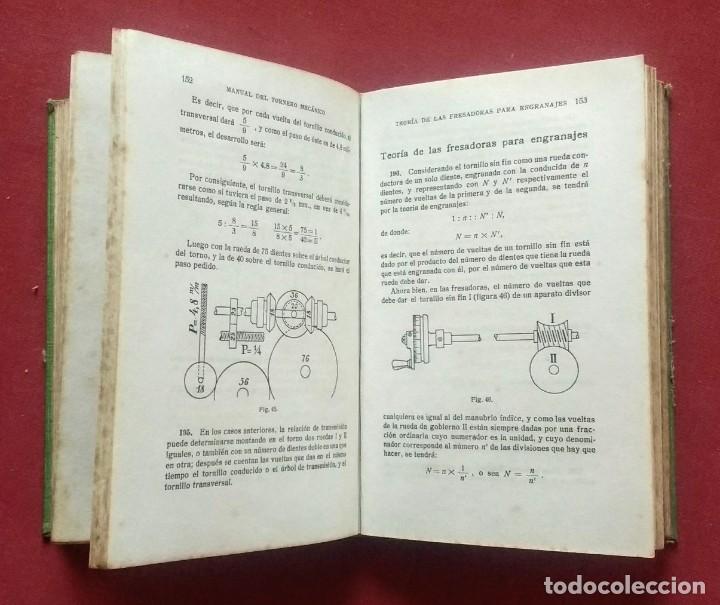 152
MANUAL DEL TORNERO MECÁNICO
Es decir, que por cada vuelta del tornillo conducido, el
transversal dará 5/9, y como el paso de éste es de 4,8 milí-
metros, el desarrollo será:
5/9 × 4.8 = 24/9 = 8/3.
Por consiguiente, el tornillo transversal deberá conside-
rarse como si tuviera el paso de 2 2/3 mm., en vez de 4
resultando, según la regla general:
5 : 8/3 = 15/8 15 × 5/8 × 5 = 75 = 1/40 = 5.
Luego con la rueda de 75 dientes sobre el árbol conductor
del torno, y la de 40 sobre el tornillo conducido, se hará el
paso pedido.
P=4,8 m/m
18
36
25
18
18
P=1/4
36
76
Fig. 45.
195. En los casos anteriores, la relación de transmisión
puede determinarse montando en el torno dos ruedas I y II
iguales, o también con un número de dientes doble en una que
en otra; después se cuentan las vueltas que dan en el mismo
tiempo el tornillo conducido o el árbol de transmisión, y el
tornillo transversal.
TEORÍA DE LAS FRESADORAS PARA ENGRANAJES 153
Teoría de las fresadoras para engranajes
196. Considerando el tornillo sin fin como una rueda con-
ductora de un solo diente, engranada con la conducida de n
dientes, y representando con N y N' respectivamente el
número de vueltas de la primera y de la segunda, se tendrá
por la teoría de engranajes:
1 : n :: N' : N,
de donde:
N = n × N',
es decir, que el número de vueltas de un tornillo sin fin está
dado por el producto del número de dientes que tiene la rueda
que está engranada con él, por el número de vueltas que esta
rueda debe dar.
Ahora bien, en las fresadoras, el número de vueltas
que debe dar el tornillo sin fin I (figura 46) de un aparato divisor
I
II
Fig. 46.
cualquiera es igual al del manubrio índice, y como las vueltas
de la rueda de gobierno II están siempre dadas por una frac-
ción ordinaria cuyo numerador es la unidad, y cuyo denomi-
nador corresponde al número n' de las divisiones que hay que
hacer, se tendrá:
N = n × 1/n', o sea N = n/n'.
todocoleccion